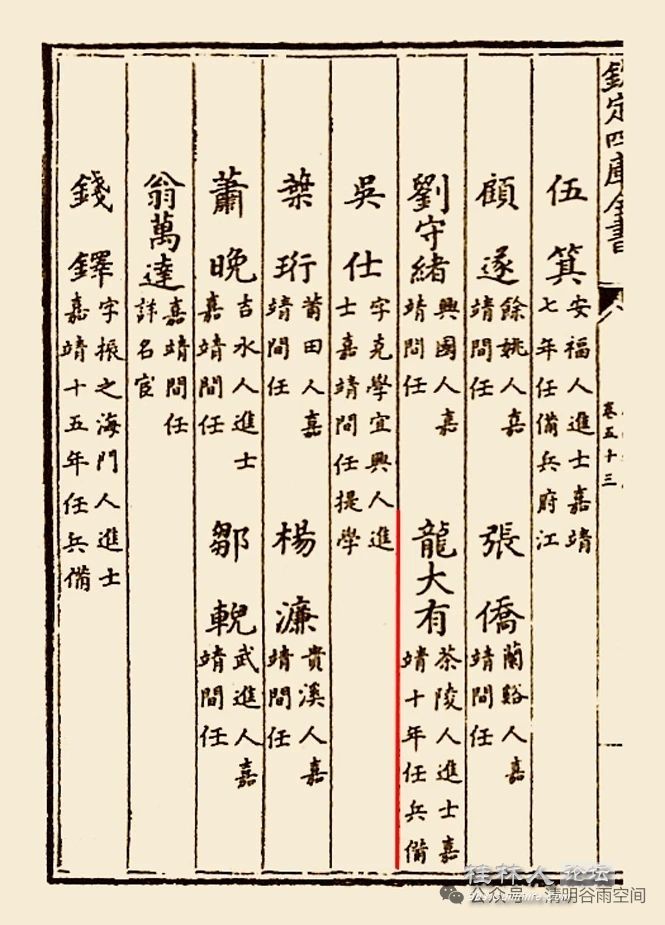 欽定四庫全書
卷五十三
伍箕 安福人進士嘉靖七年任備兵府江
顧遂 餘姚人嘉靖間任 張僑 蘭谿人嘉靖間任
劉守緒 興國人嘉靖間任 龍大有 茶陵人進士嘉靖十年任兵備
吳仕 字克學宜興人進士嘉靖間任提學
葉珩 莆田人嘉靖間任 楊濂 貴溪人嘉靖間任
蕭晚 吉水人進士嘉靖間任 鄒輗 武進人嘉靖間任
翁萬達 嘉靖間任詳名宦
錢鐸 字振之海門人進士嘉靖十五年任兵備
桂林人论坛
公众号 · 清明谷雨空间